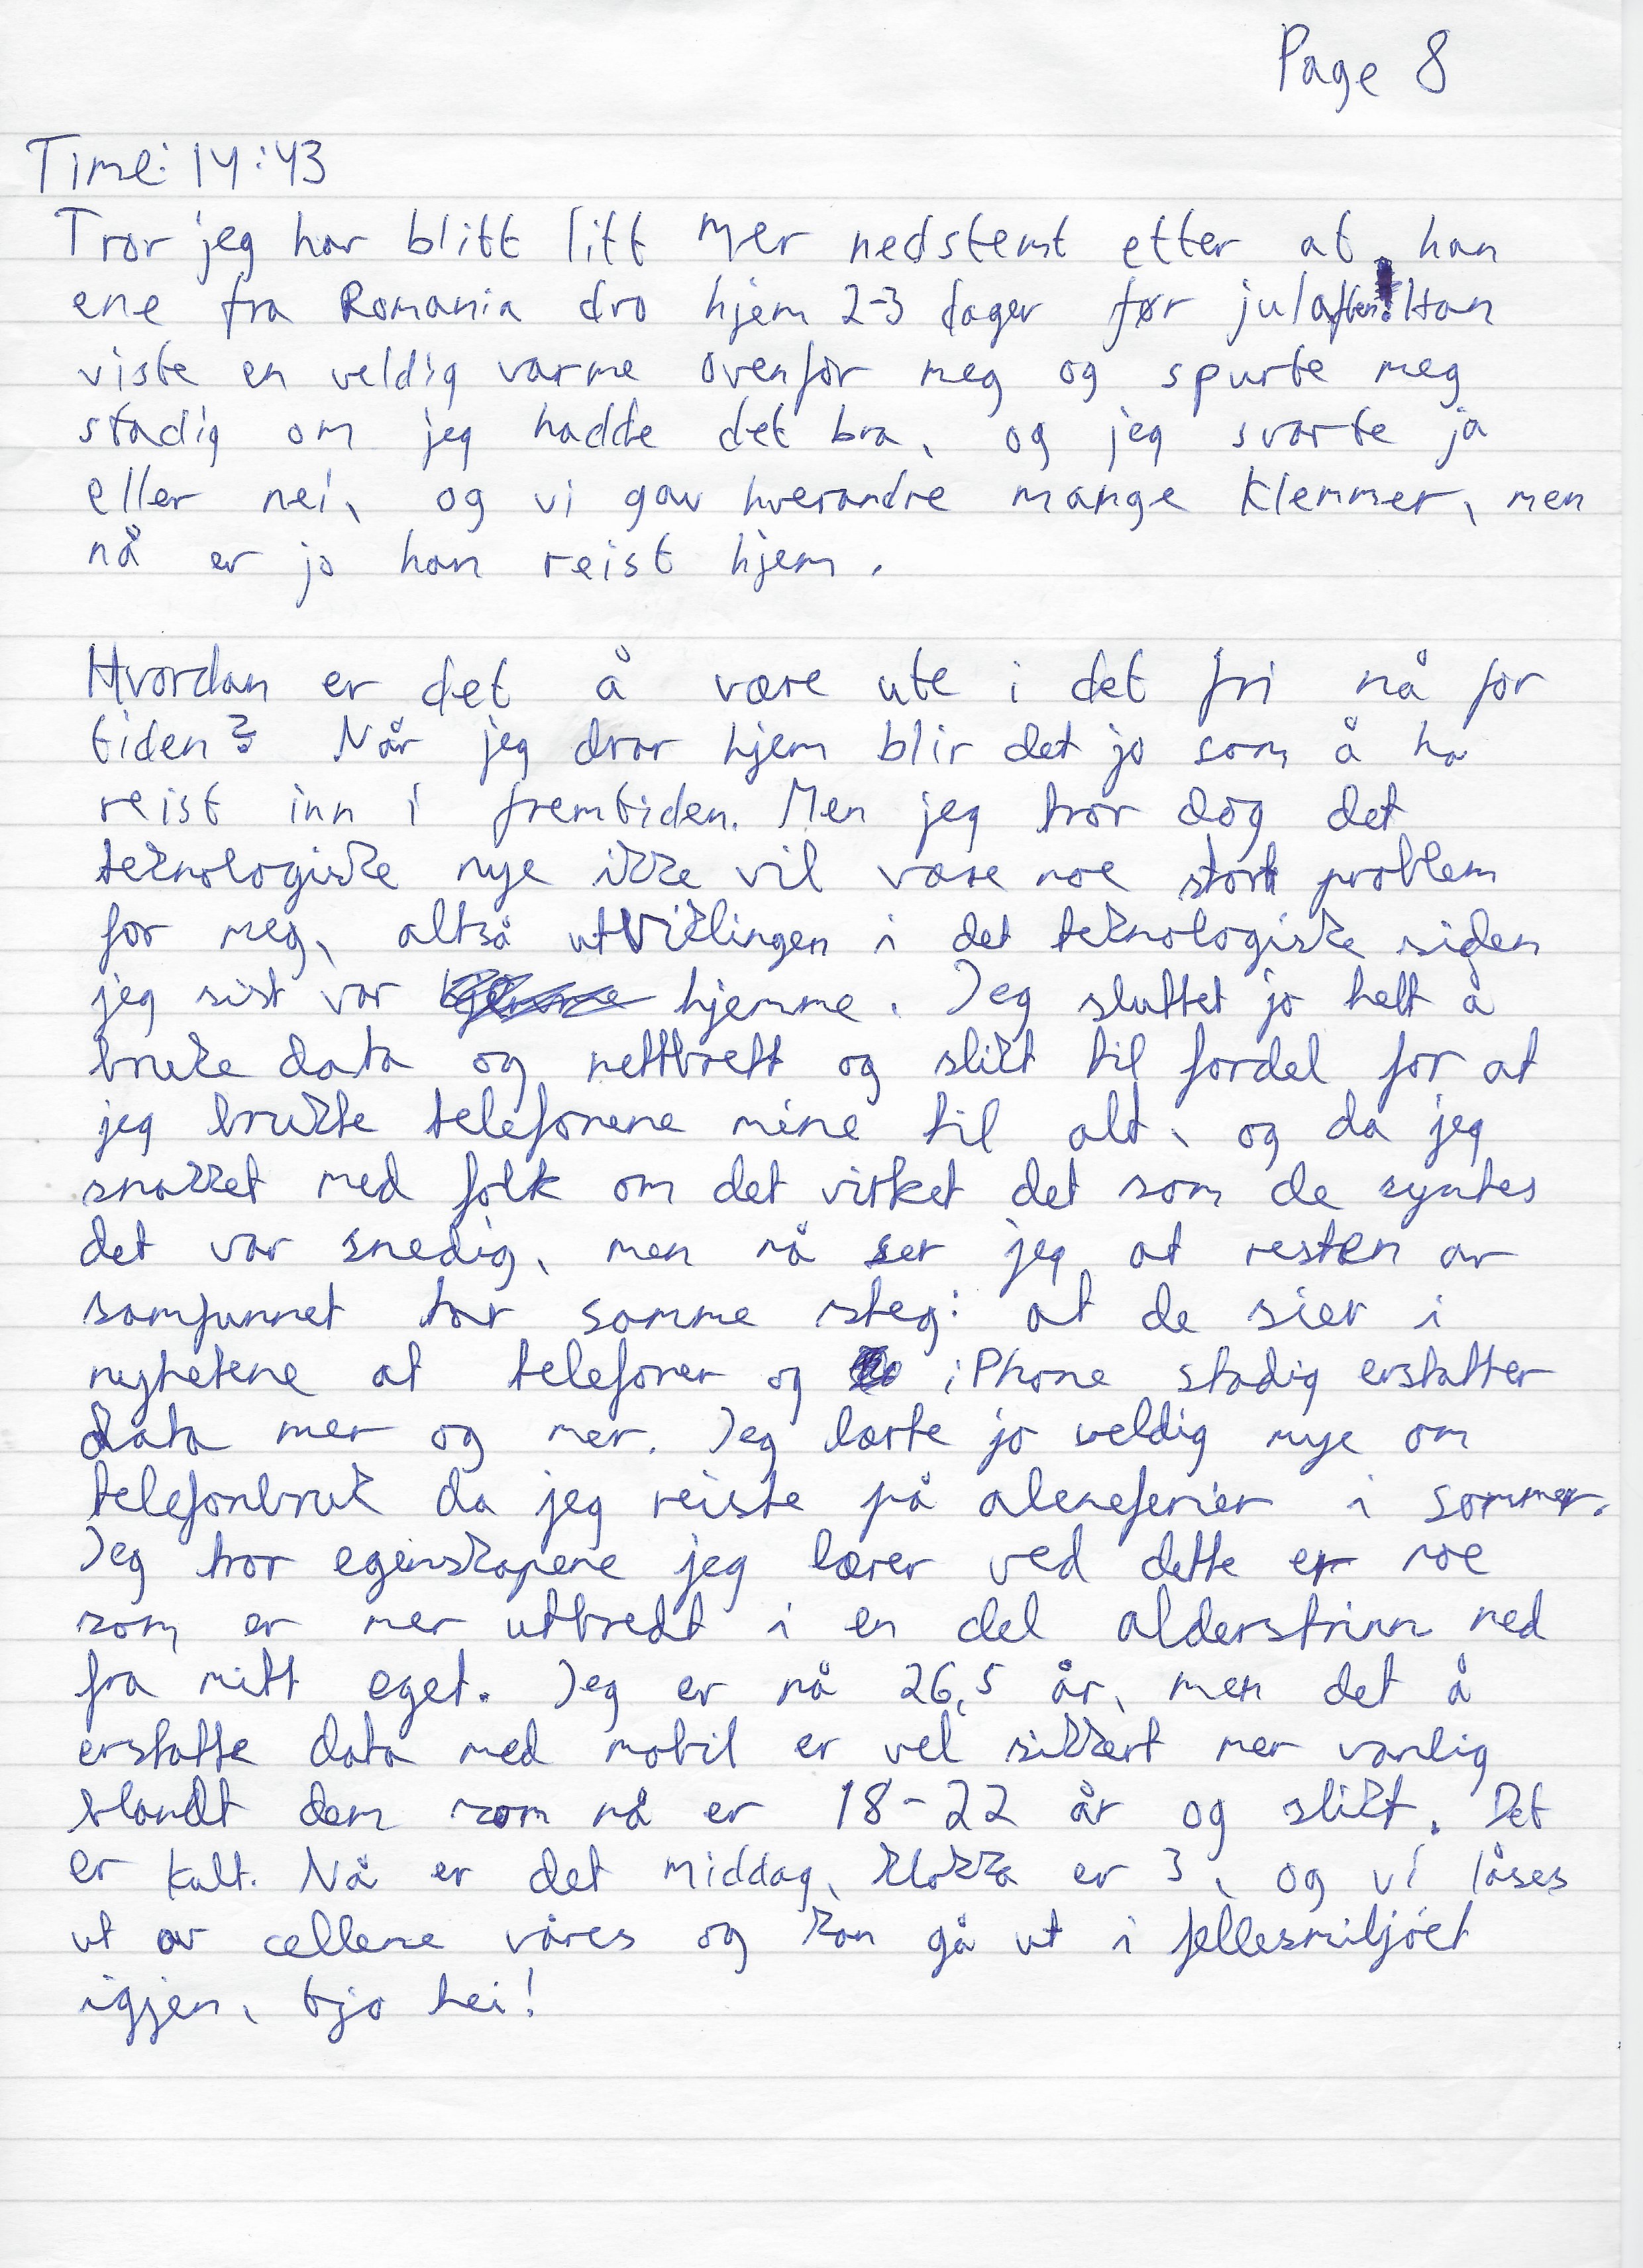 Page 8
Time: 14:43
Tror jeg har blitt litt mer nedstemt etter at han
ene fra Romania dro hjem 2-3 dager før julaften. Han
viste en veldig varme ovenfor meg og spurte meg
stadig om jeg hadde det bra, og jeg svarte ja
eller nei, og vi gav hverandre mange klemmer, men
nå er jo han reist hjem.
Hvordan er det å være ute i det fri nå for
tiden? Når jeg drar hjem blir det jo som å ha
reist inn i fremtiden. Men jeg tror dog det
teknologiske nye ikke vil være noe stort problem
for meg, altså utviklingen i det teknologiske siden
jeg sist var hjemme. Jeg sluttet jo helt å
bruke data og nettbrett og slikt til fordel for at
jeg brukte telefonene mine til alt, og da jeg
snakket med folk om det virket det som de syntes
det var snedig, men nå ser jeg at resten av
samfunnet tar samme steg: at de sier i
nyhetene at telefoner og iPhone stadig erstatter
data mer og mer. Jeg lærte jo veldig mye om
telefonbruk da jeg reiste på aleneferier i sommer.
Jeg tror egenskapene jeg lærer ved dette er noe
som er mer utbredt i en del alderstrinn ned
fra mitt eget. Jeg er nå 26,5 år, men det å
erstatte data med mobil er vel sikkert mer vanlig
blandt dem som nå er 18-22 år og slikt. Det
er kult. Nå er det middag, klokka er 3, og vi låses
ut av cellene våres og kan gå ut i fellesmiljøet
igjen, tjo hei!